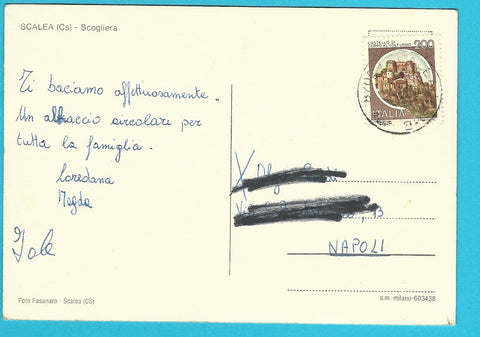 SCALEA (Cs) - Scogliera
Ti baciamo affettuosamente.
Un abbraccio circolare per
tutta la famiglia -
Loredana
Magda
Iole
200
ITALIA
13
NAPOLI
Foto Fasanaro - Scalea (CS)
a.m.-milano-603438